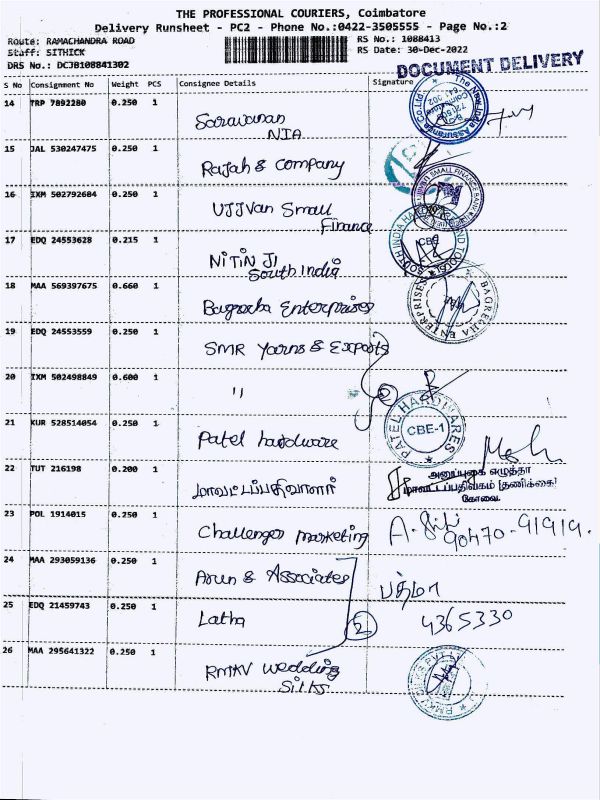 THE PROFESSIONAL COURIERS, Coimbatore
Delivery Runsheet - PC2 - Phone No.:0422-3505555 - Page No.:2
Route: RAMACHANDRA ROAD
RS No.: 1088413
Staff: SITHICK
RS Date: 30-Dec-2022
DRS No.: DCJB108841302
DOCUMENT DELIVERY
S No Consignment No Weight PCS Consignee Details Signature
14 TRP 7892280 0.250 1
Saravanan
NIA
15 JAL 530247475 0.250 1
Rajah & Company
16 IXM 502792604 0.250 1
UJJvan Small
Finance
17 EDQ 24553628 0.215 1
NITIN JI
South India
CBE
18 MAA 569397675 0.660 1
Bagrecha Enterprises
BAGRECHA ENTERPRISES
19 EDQ 24553559 0.250 1
SMR Yarns & Exports
20 IXM 502498849 0.600 1
"
2
21 KUR 528514054 0.250 1
Patel hardware
PATEL HARDWARES
CBE-1
22 TUT 216198 0.200 1
மாவட்டப்பதிவாளர்
அலுவலக எழுத்தர்
மாவட்டப்பதிவகம் (தணிக்கை)
கோவை.
23 POL 1914015 0.250 1
Challenger marketing
90470-91919.
24 MAA 293059136 0.250 1
Arun & Associates
பத்மா
25 EDQ 21459743 0.250 1
Latha
2
4365330
26 MAA 295641322 0.250 1
RMKV Wedding
Silks